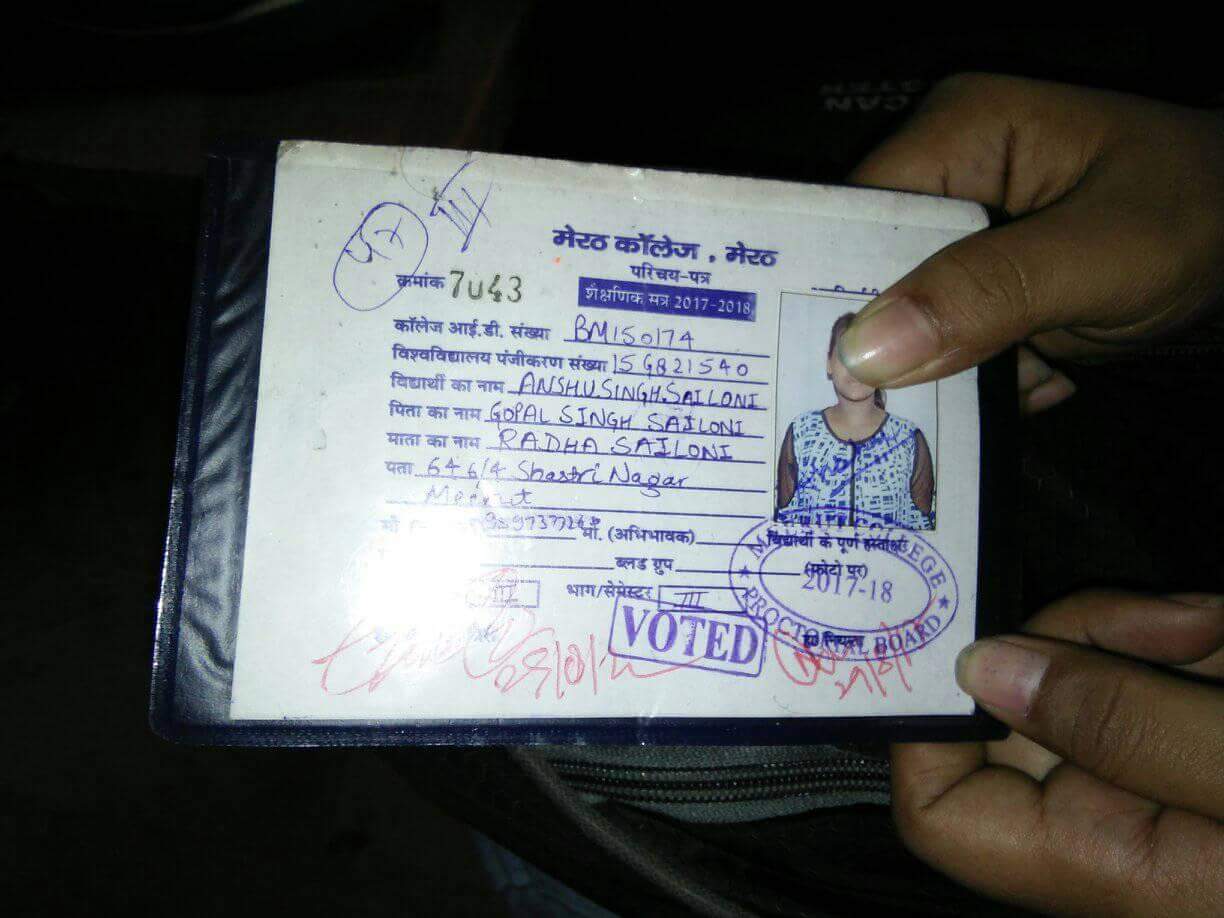 III
मेरठ कॉलेज, मेरठ
परिचय-पत्र
क्रमांक 7043
शैक्षणिक सत्र 2017-2018
कॉलेज आई.डी. संख्या BM150174
विश्वविद्यालय पंजीकरण संख्या 15G821540
विद्यार्थी का नाम ANSHU SINGH SAILONI
पिता का नाम GOPAL SINGH SAILONI
माता का नाम RADHA SAILONI
पता 646/4 Shastri Nagar
Meerut
मो. (अभिभावक)
विद्यार्थी के पूर्ण हस्ताक्षर
ब्लड ग्रुप
(फोटो पर)
2017-18
III भाग/सेमेस्टर III
VOTED
PROCTORIAL BOARD